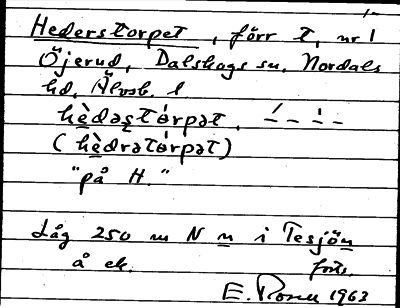 Hederstorpet, förr t, nr 1
Öjerud, Dalskogs sn, Nordals
hd, Älvsb. l
hèdəstórpət,
(hèdrətórpət)
"på H."
Låg 250 m N n i Tesjön
å ek. forts.
E. 1963